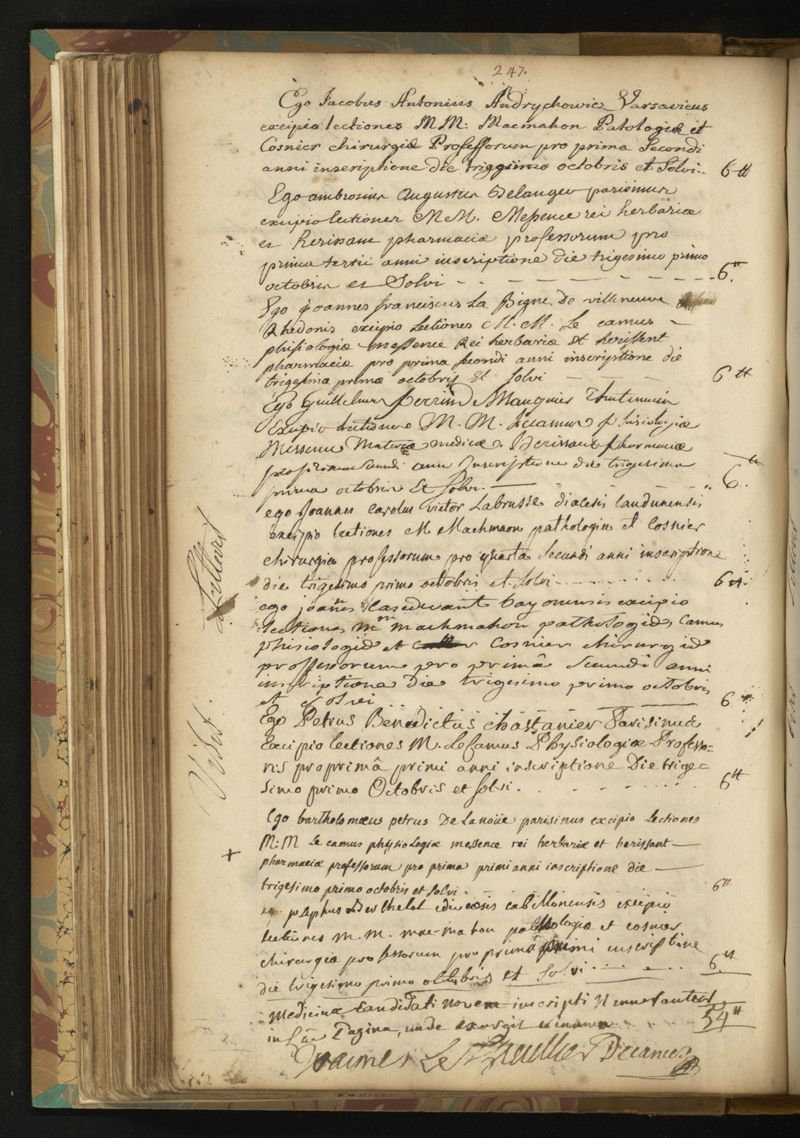 247.
Ego Jacobus Antonius Andrychowicz Varsavicus
excipio lectiones MM: Macmahon Patologiæ et
Cosnier chirurgiæ Professorum pro prima secondi
anni inscriptione die triggsimo octobris et solvi.. 6 tt
Ego ambrosius augustus Delanger parisinus
excipio lectiones M.M. Messence rei herbariæ
et herissant pharmaciæ professorum pro
prima tertii anni inscriptione die trigesimo primo
octobris et Solvi - - - - - - 6. tt
Ego joannes franciscus La Bigne de villeneuve
Rhedonis excipio lectiones M. M. Le camus -
phisiologiæ messence Rei herbariæ et herissent
pharmaciæ pro prima secondi anni inscriptione die
trigesima prima octobris et solvi - - 6 tt
Ego Guillelmus
Excipio lectiones M. M. Lecamus phisiologiæ
Messence Materiæ medicæ herissant pharmaciæ
secundi anni inscriptione die trigesimo
primo octobris et solvi - - 6. tt
ego joannes carolus victor Labrusse diocesis laudunensis
excipio lectiones M Machmaon pathologiæ et cosnier
chirurgiæ professorum pro quarta secundi anni inscriptione
die trigesimo primo octobris et solvi - - - - 6 tt.
ego joañes Casedevant bayonensis excipio
lectiones machmahon pathologiæ, camus
phisiologiæ et cosnier chirurgiæ
professorum pro primâ secundi anni
inscriptione die trigesimo primo octobris
et solvi - - 6 tt
Ego Petrus Benedictus chastanier Parisinus
Excipio lectiones M. Lecamus Physiologiæ Professo=
ris pro primâ primi anni inscriptione Die trige=
simo primo Octobris et solvi. - - - - 6 tt
Ego bartholomæus petrus De Lanoüe parisinus excipio lectiones
+ M: M Le camus physiologiæ messence rei herbariæ et herissant —
pharmaciæ professorum pro prima primi anni inscriptione die —
trigesimo primo octobris et solvi - 6 tt
Berthelot diœcesis cabillonensis excipio
lectiones m. m. mac-ma hon pathologiæ et cosnier
chirurgiæ professorum pro primâ primi inscriptione
die trigesimo primo octobris et solvi - - - - 6 tt
Medicinæ Candidati novem inscripti
in hac Pagina, unde exurgit summa - - 54 tt
Joannes Le Thuillier Decanus